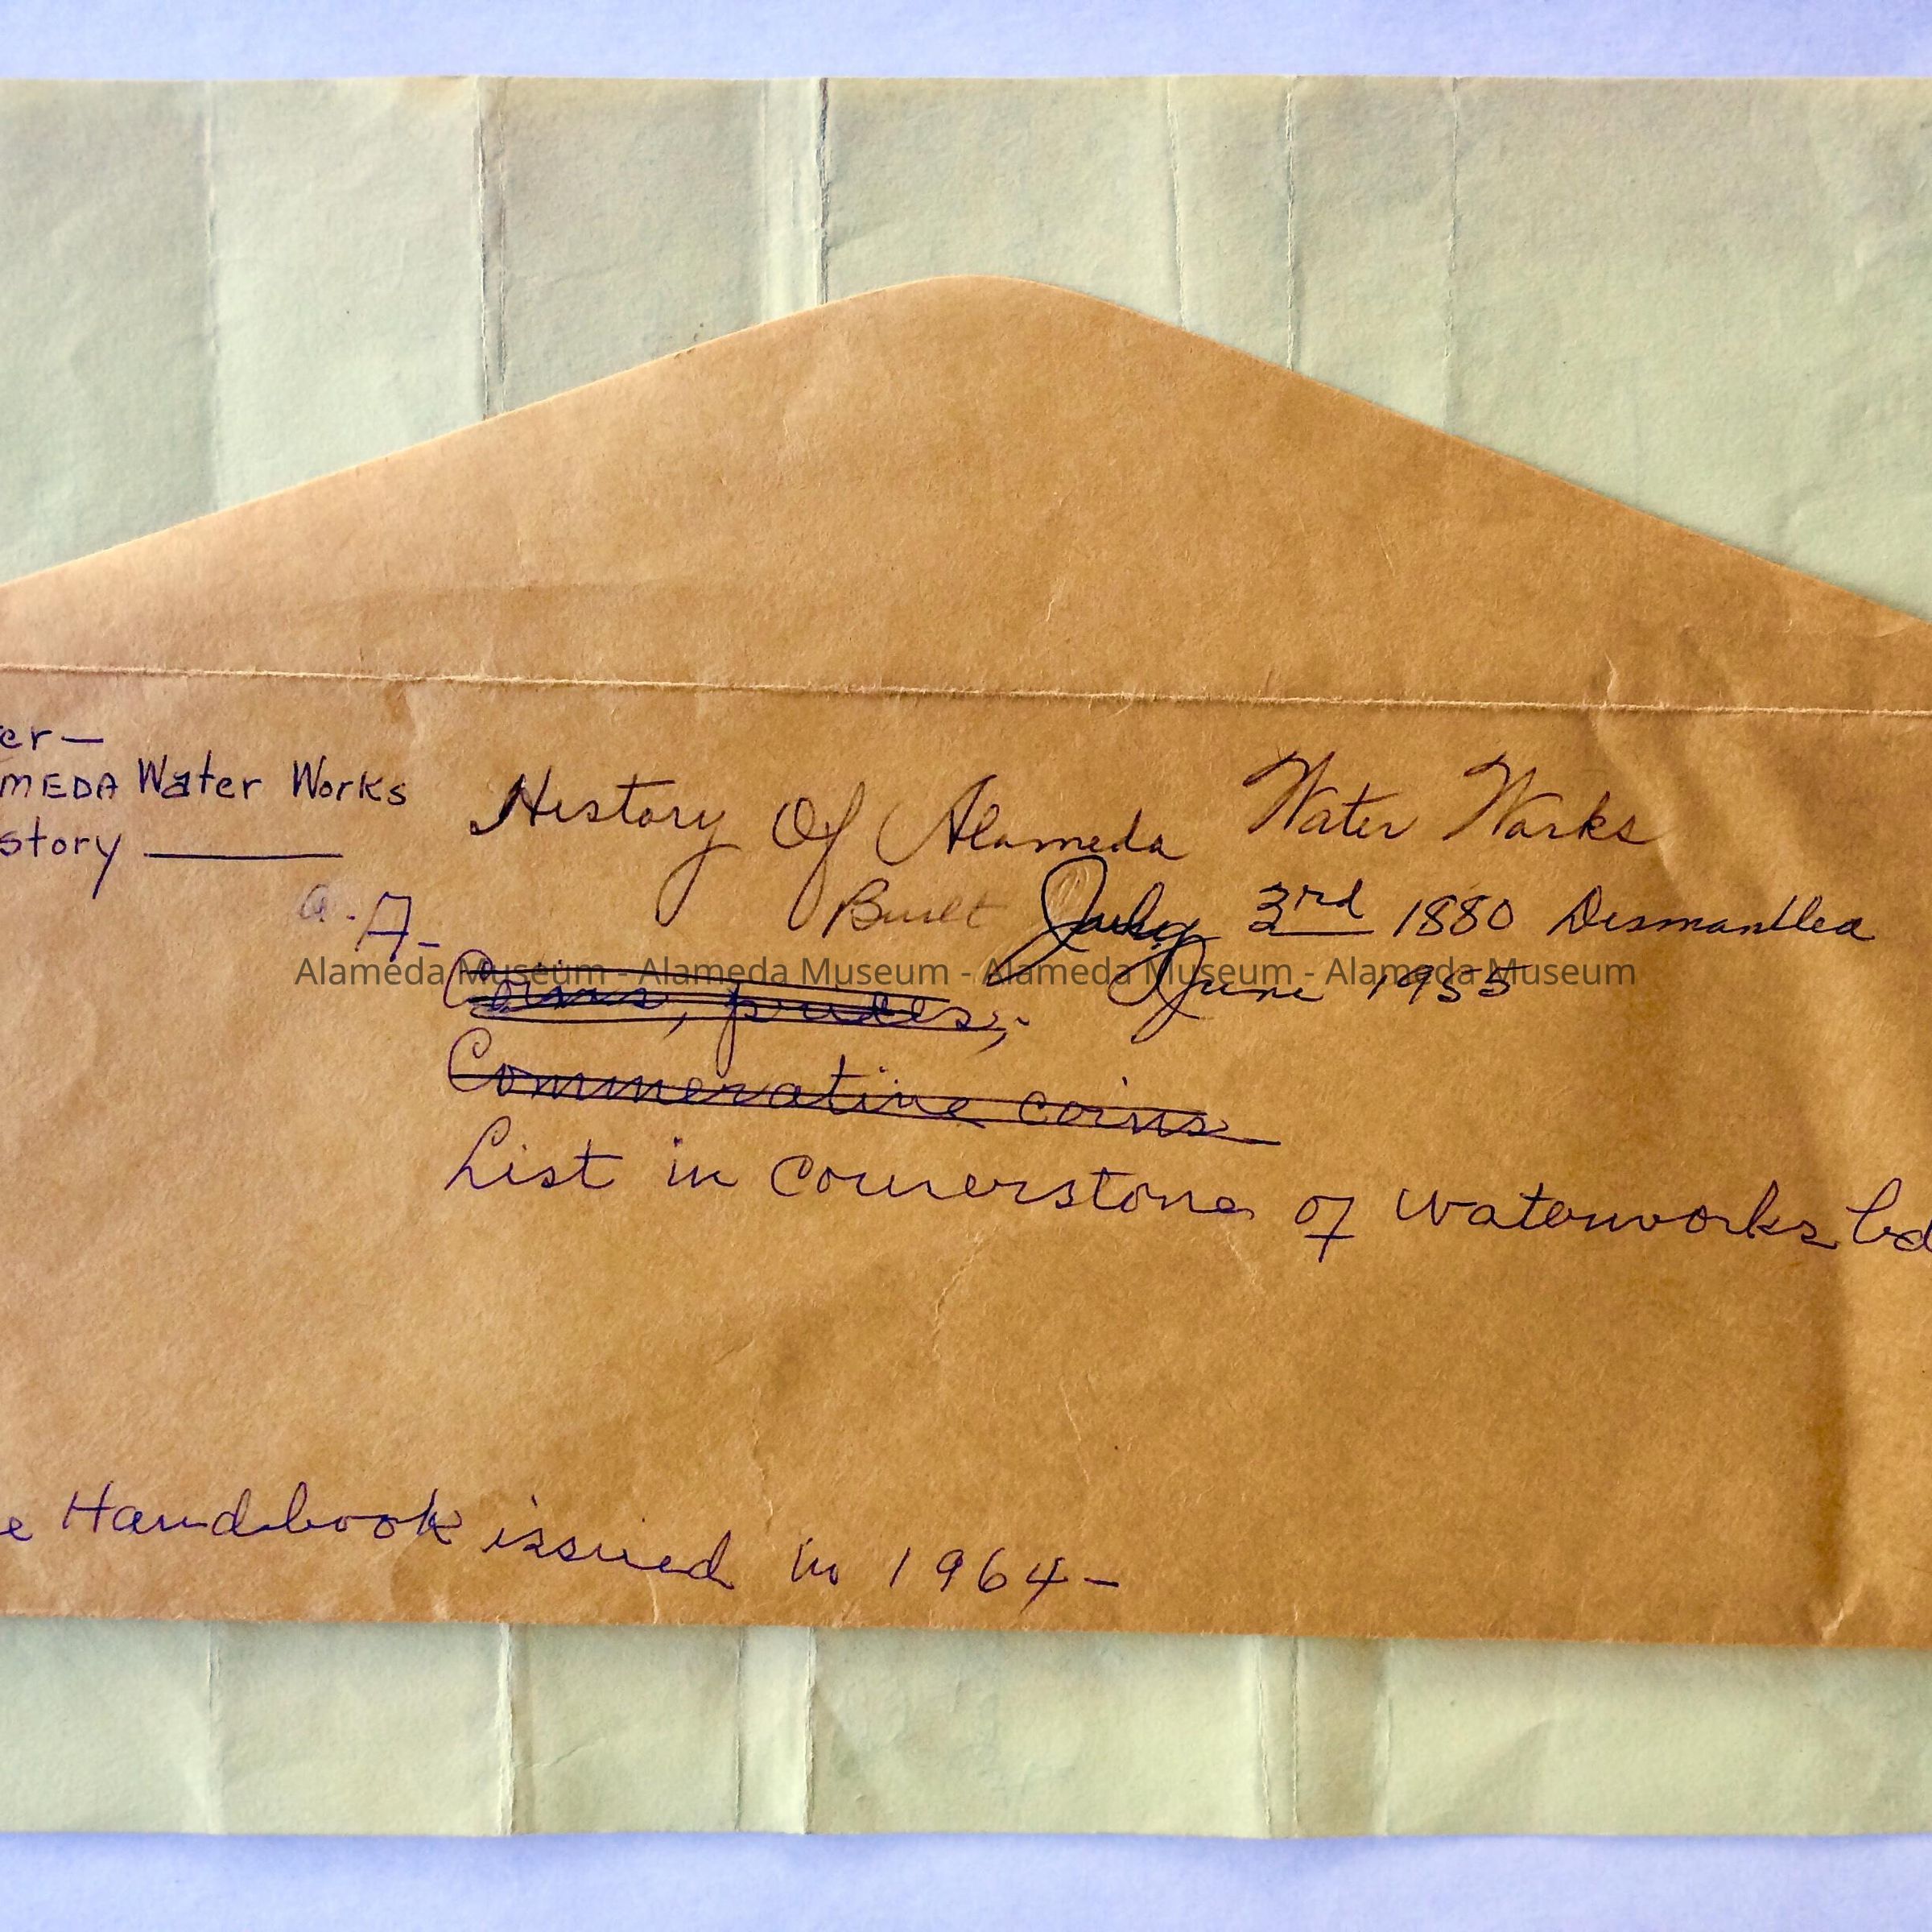 er—
MEDA Water Works
story
History Of Alameda Water Works
a. A-
Built July 3rd 1880 Dismantled
June 1955
Alameda Museum - Alameda Museum - Alameda Museum - Alameda Museum
Coins,
Commerative coins
List in Cornerstone of Waterworks bd
e Handbook issued in 1964-